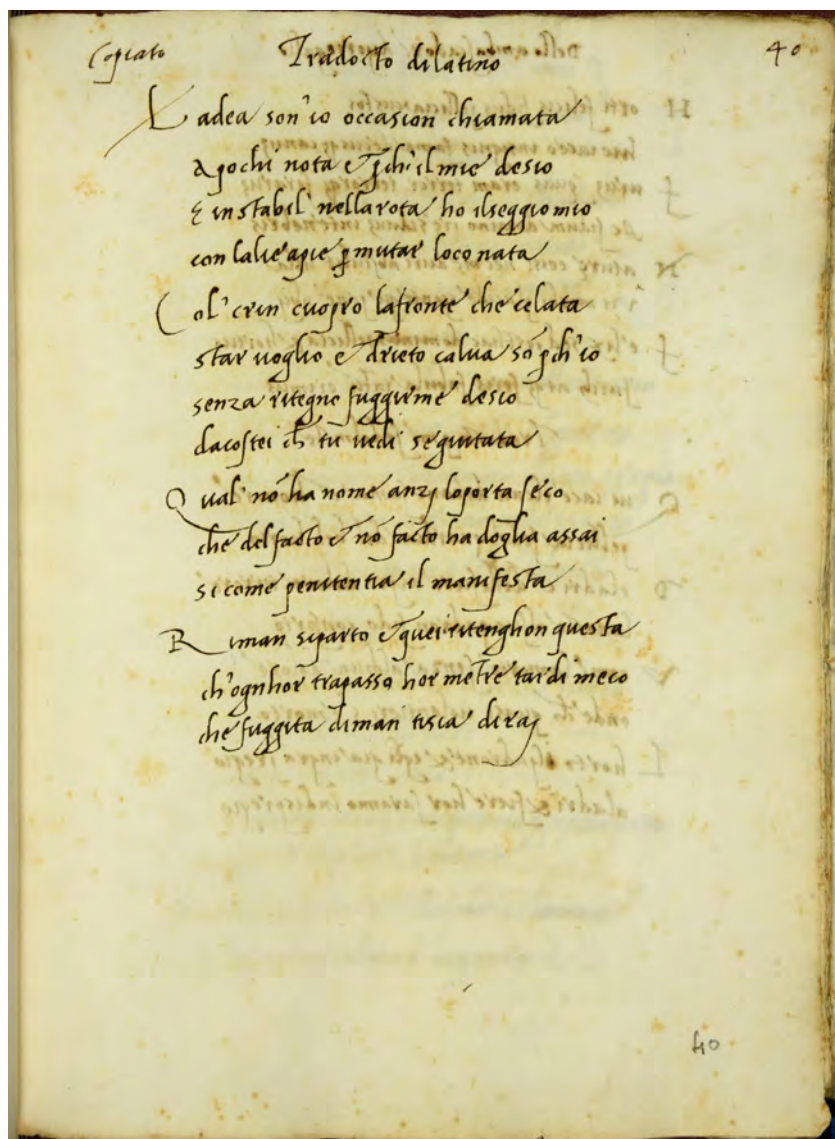 Copiato Tradocto di latino 40
La dea son' io occasion chiamata
A pochi nota et p̱ch' il mie desio
E instabil' nella rota ho il seggio mio
con lalie apie p̱ mutar loco nata
Col' crin cuopro la fronte che celata
star uoglio e drieto calua sō p̱ch' io
senza ritegno fuggirme desio
da costei ch̄ tu uedi seguitata
Qual' nō ha nome anzj lo porta seco
che del facto et nō facto ha doglia assai
si come penitentia il manifesta
Riman si parto et quei ritenghon questa
ch' ognhor trapasso hor metre tardi meco
che fuggita di man tisia diraj
40